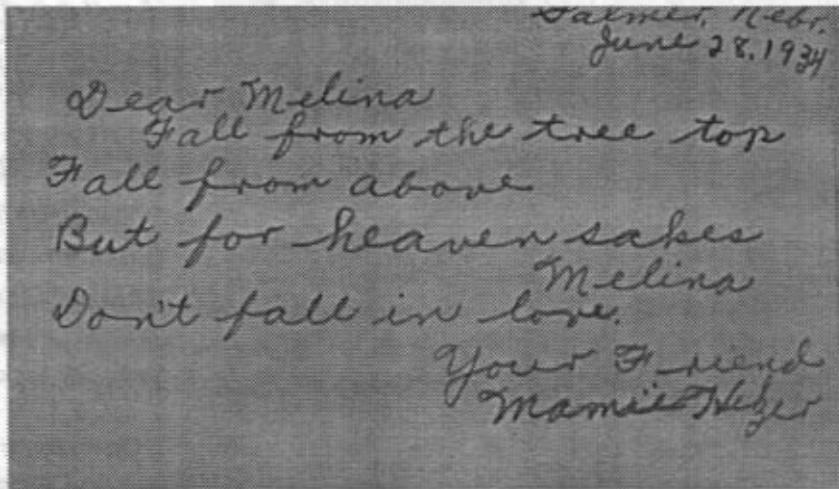 Palmer, Nebr.
June 28, 1934
Dear Melina
Fall from the tree top
Fall from above
But for heaven sakes
Melina
Don't fall in love.
Your Friend
Mamie